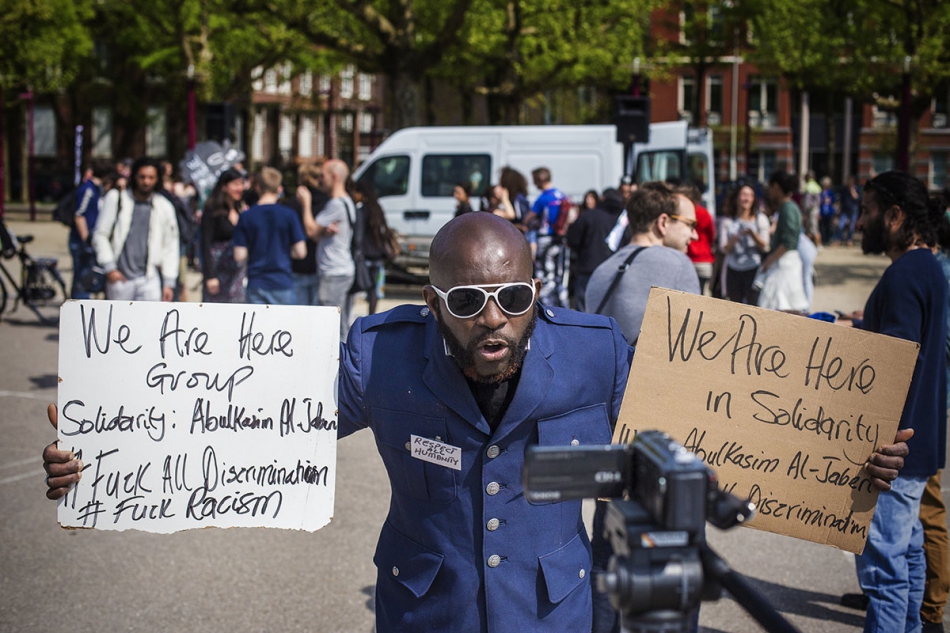 We Are Here
Group
Solidarity: AbulKasim Al-Jaberi
# Fuck All Discrimination
# Fuck Racism
RESPECT
ALL
HUMANITY
We Are Here
in Solidarity
AbulKasim Al-Jaberi
Discrimination